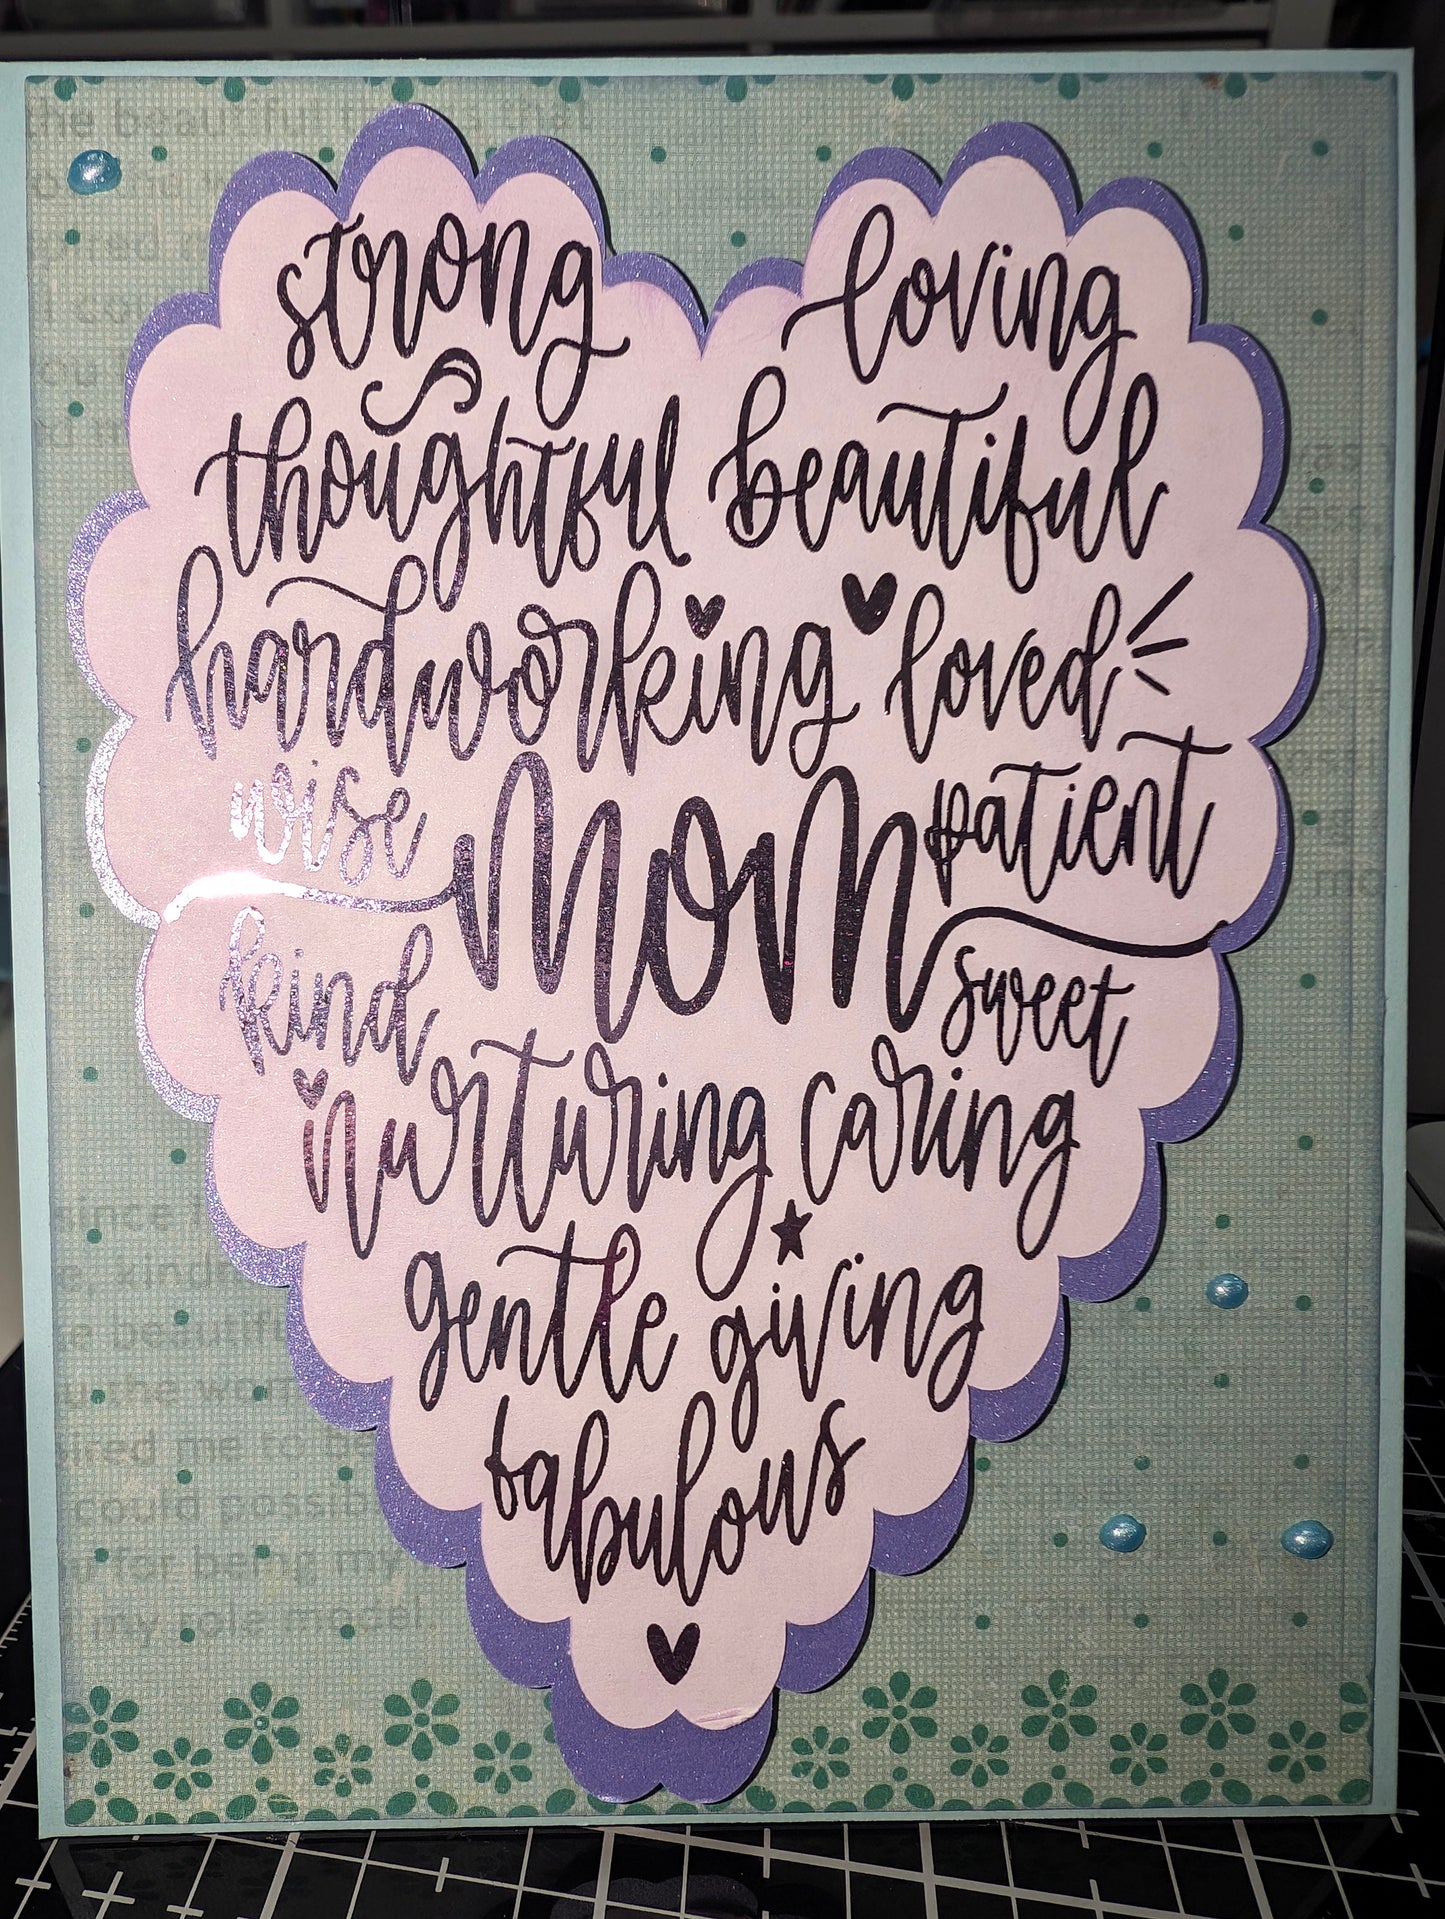 the beautiful
strong loving
thoughtful beautiful
hardworking loved
wise mom patient
kind sweet
nurturing caring
gentle giving
fabulous
since
kind
beautiful
the
me to be
could possib
for being my
my role model